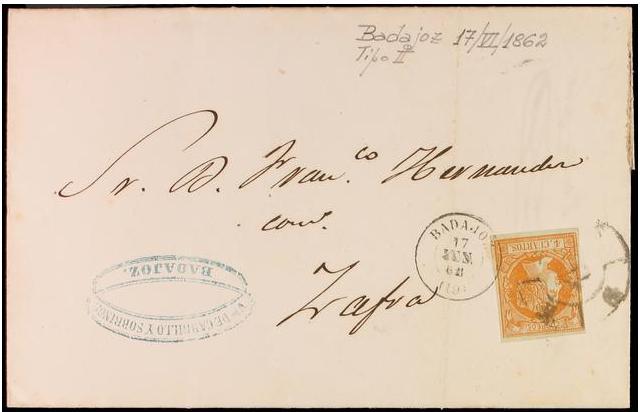 Badajoz 17/VI/1862
Tipo II
Sr. D. Fran.co Hernandez
com.
Zafra
BADAJOZ
17
JUN
62
(19)
4 CUARTOS
Va DE CARRILLO Y SOBRINOS
BADAJOZ.